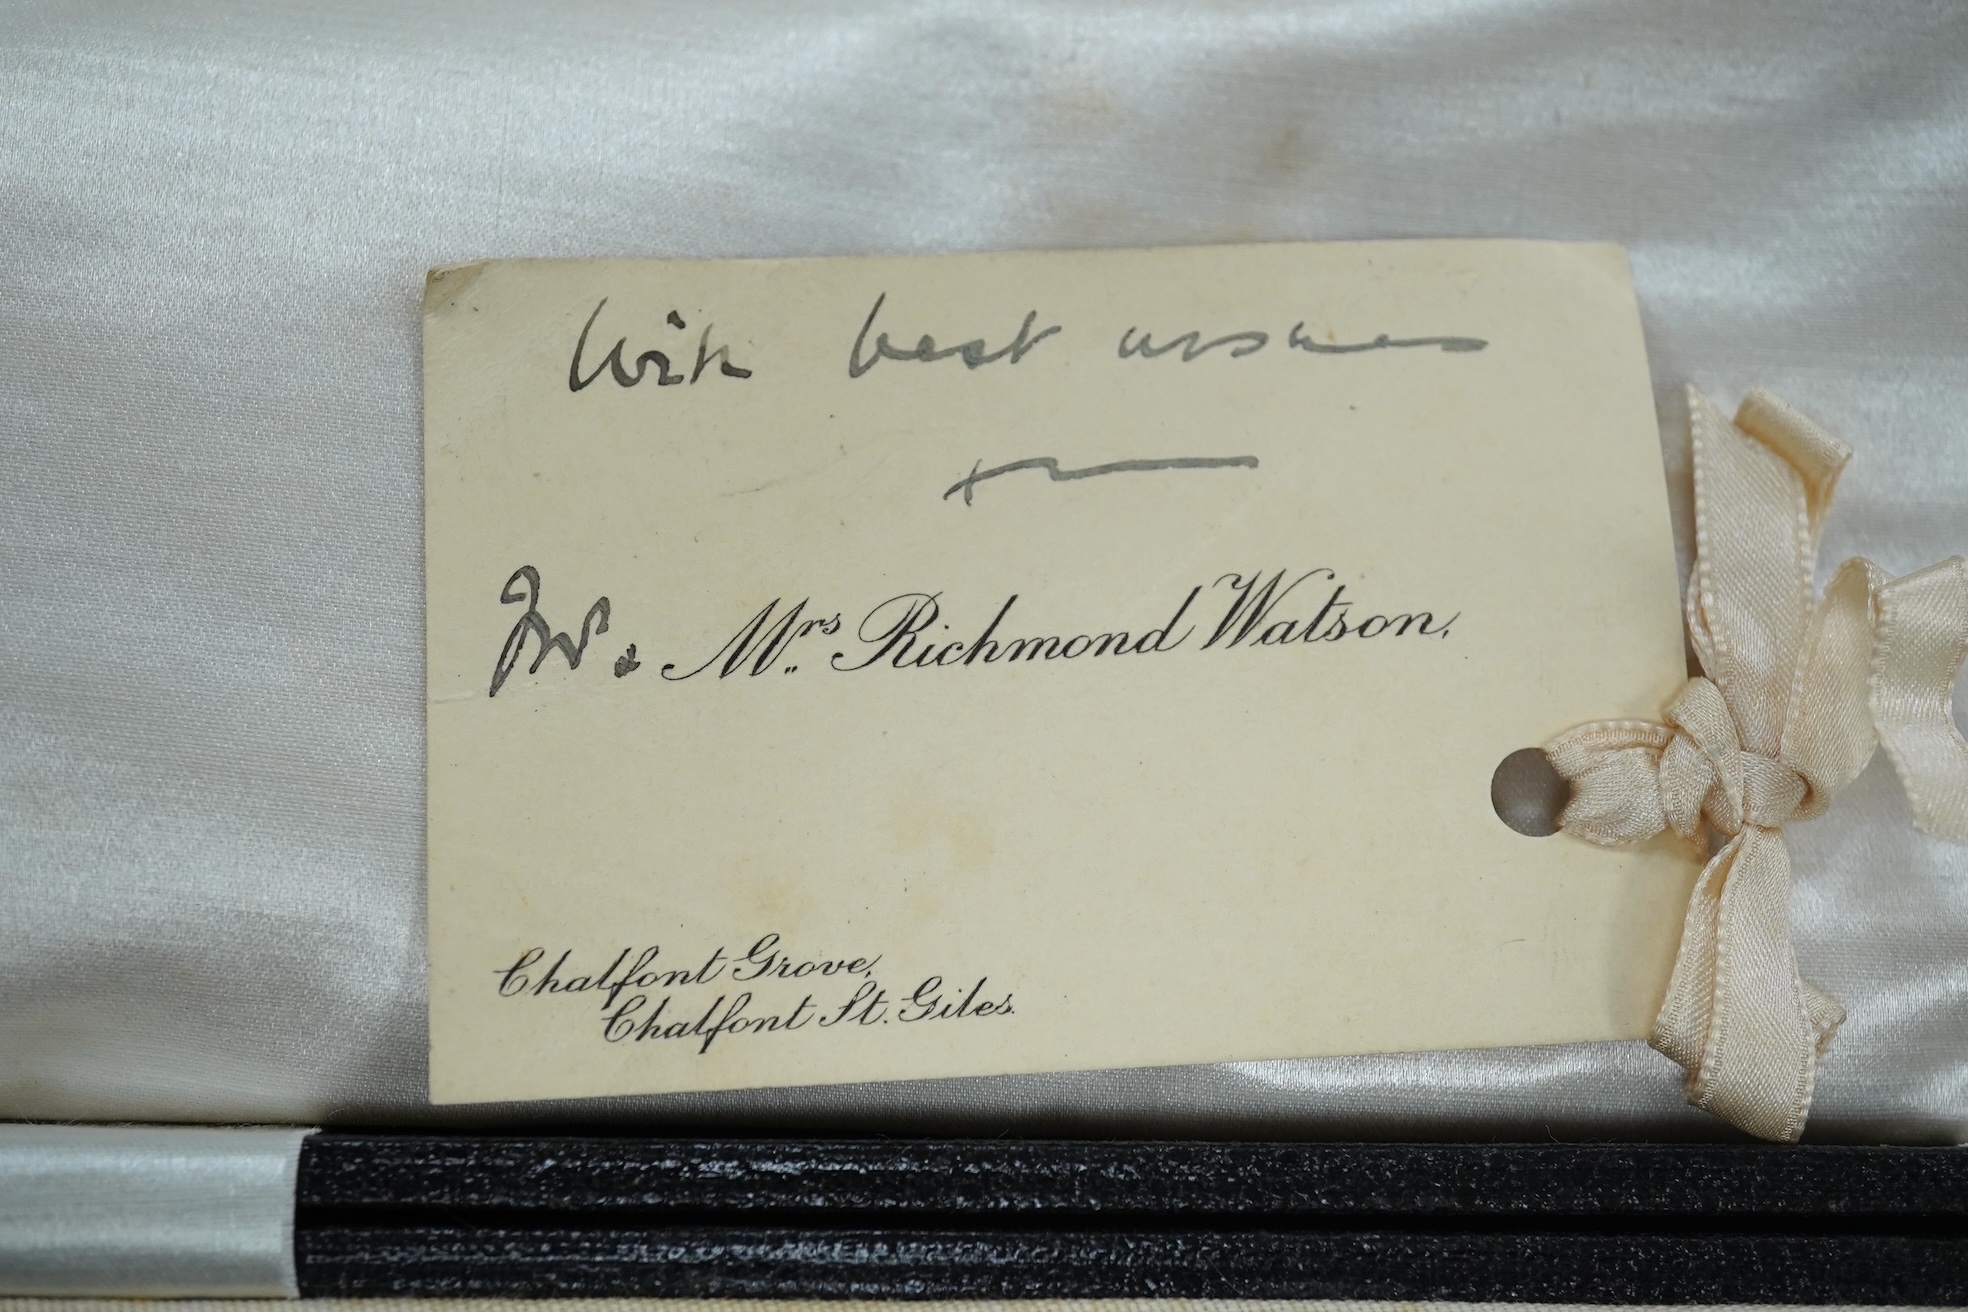 With best wishes
from
Mr. & Mrs. Richmond Watson.
Chalfont Grove,
Chalfont St. Giles.